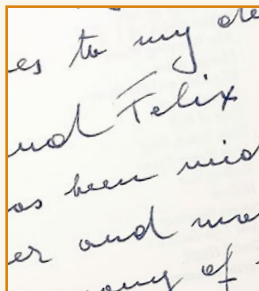 es to my de
and Felix
as been mid
er and mo
many of